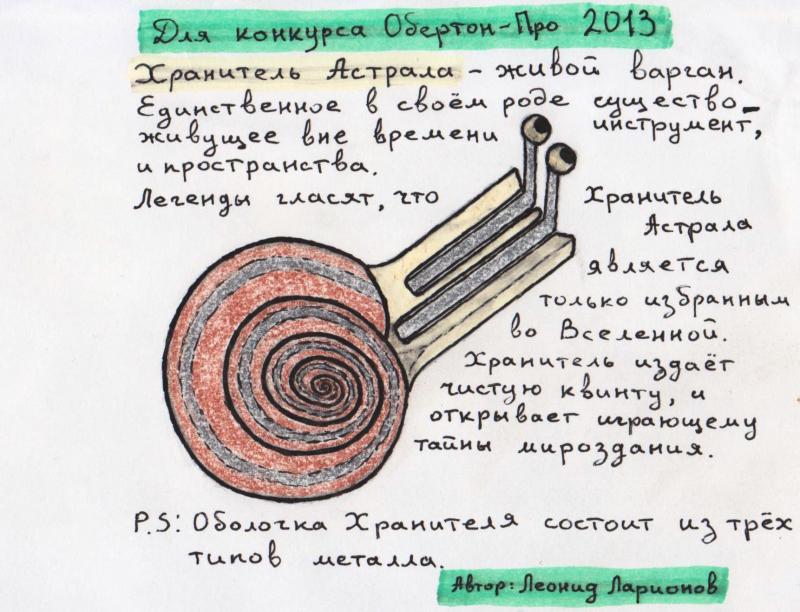 Для конкурса Обертон-Про 2013
Хранитель Астрала - живой варган.
Единственное в своём роде существо-
инструмент,
живущее вне времени
и пространства.
Легенды гласят, что Хранитель
Астрала
является
только избранным
во Вселенной.
Хранитель издаёт
чистую квинту, и
открывает играющему
тайны мироздания.
P.S: Оболочка Хранителя состоит из трёх
типов металла.
Автор: Леонид Ларионов